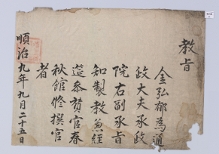 教旨
金弘郁爲通
政大夫承政
院右副承旨
知製教兼經
筵參贊官春
秋館修撰官
者
順治九年九月二十五日